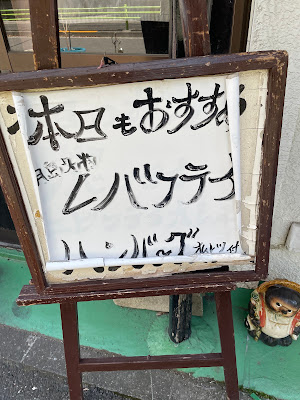 本日もおすすめ
レバフライ
ハンバーグ